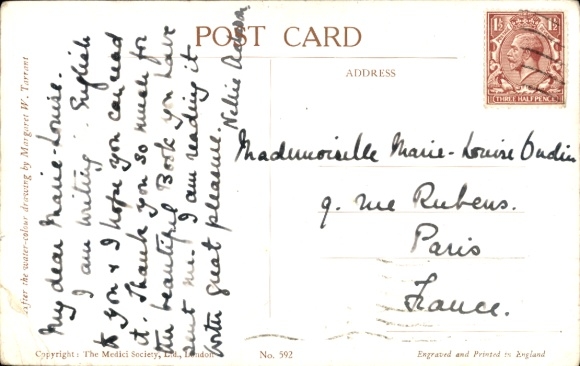 POST CARD
ADDRESS
1½ 1½
THREE HALF PENCE
After the water-colour drawing by Margaret W. Tarrant
My dear Marie-Louise.
I am writing English
to you & I hope you can read
it. Thank you so much for
the beautiful Book you have
sent me. I am reading it
with great pleasure.
Nellie
Mademoiselle Marie-Louise Oudin
9. rue Rubens.
Paris
France.
Copyright: The Medici Society, Ltd., London
No. 592
Engraved and Printed in England